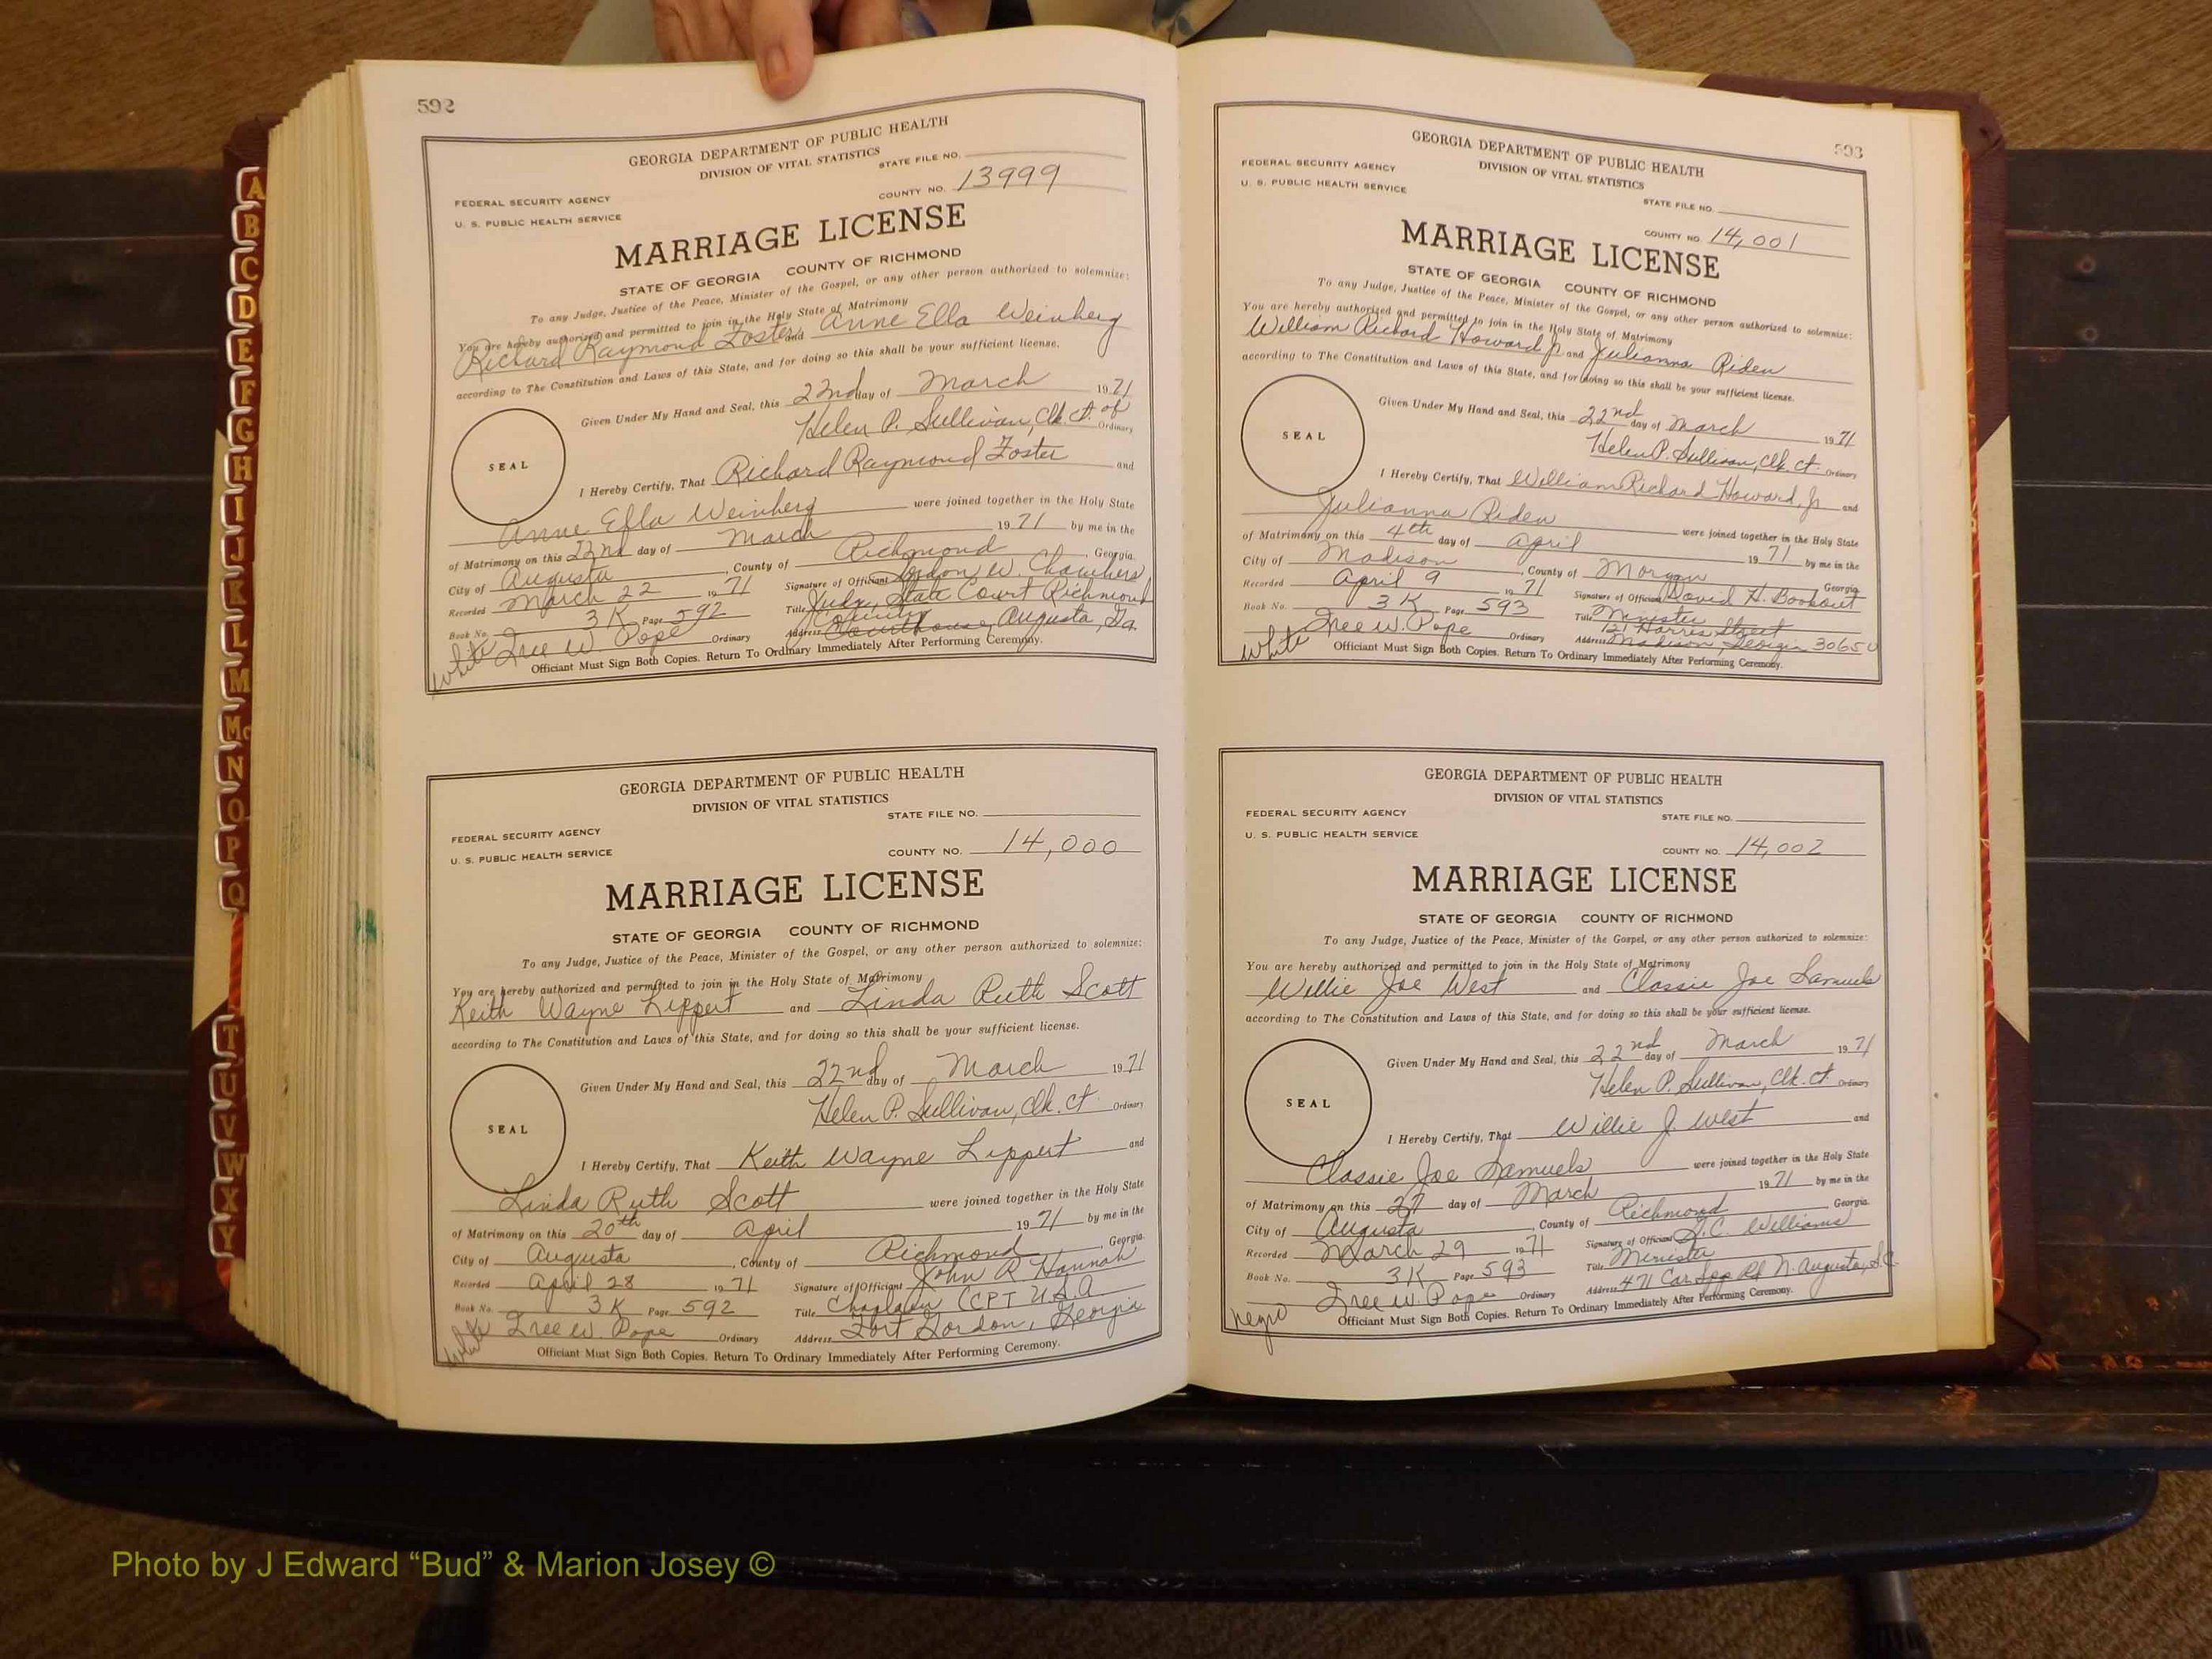 592
GEORGIA DEPARTMENT OF PUBLIC HEALTH
DIVISION OF VITAL STATISTICS
STATE FILE NO.
FEDERAL SECURITY AGENCY
U. S. PUBLIC HEALTH SERVICE
COUNTY NO. 13999
MARRIAGE LICENSE
STATE OF GEORGIA COUNTY OF RICHMOND
To any Judge, Justice of the Peace, Minister of the Gospel, or any other person authorized to solemnize:
You are hereby authorized and permitted to join in the Holy State of Matrimony
Richard Raymond Foster and Anne Ella Weinberg
according to The Constitution and Laws of this State, and for doing so this shall be your sufficient license.
Given Under My Hand and Seal, this 22nd day of March 1971
Helen P. Sullivan, Clk. Ct. of Ordinary
SEAL
I Hereby Certify, That Richard Raymond Foster and
Anne Ella Weinberg were joined together in the Holy State
of Matrimony on this 22nd day of March 1971 by me in the
City of Augusta, County of Richmond, Georgia.
Recorded March 22 1971 Signature of Officiant W. Chambers
Book No. 3K Page 592 Title Judge, State Court Richmond
County
Free W. Pope Ordinary Address Courthouse, Augusta, Ga.
white
Officiant Must Sign Both Copies. Return To Ordinary Immediately After Performing Ceremony.
GEORGIA DEPARTMENT OF PUBLIC HEALTH
DIVISION OF VITAL STATISTICS
STATE FILE NO.
FEDERAL SECURITY AGENCY
U. S. PUBLIC HEALTH SERVICE
COUNTY NO. 14,000
MARRIAGE LICENSE
STATE OF GEORGIA COUNTY OF RICHMOND
To any Judge, Justice of the Peace, Minister of the Gospel, or any other person authorized to solemnize:
You are hereby authorized and permitted to join in the Holy State of Matrimony
Keith Wayne Lippert and Linda Ruth Scott
according to The Constitution and Laws of this State, and for doing so this shall be your sufficient license.
Given Under My Hand and Seal, this 22nd day of March 1971
Helen P. Sullivan, Clk. Ct. Ordinary
SEAL
I Hereby Certify, That Keith Wayne Lippert and
Linda Ruth Scott were joined together in the Holy State
of Matrimony on this 20th day of April 1971 by me in the
City of Augusta, County of Richmond, Georgia.
Recorded April 28 1971 Signature of Officiant John R Hannah
Book No. 3K Page 592 Title Chaplain (CPT U.S.A.
Free W. Pope Ordinary Address Fort Gordon, Georgia
white
Officiant Must Sign Both Copies. Return To Ordinary Immediately After Performing Ceremony.
593
GEORGIA DEPARTMENT OF PUBLIC HEALTH
DIVISION OF VITAL STATISTICS
FEDERAL SECURITY AGENCY
U. S. PUBLIC HEALTH SERVICE
STATE FILE NO.
COUNTY NO. 14,001
MARRIAGE LICENSE
STATE OF GEORGIA COUNTY OF RICHMOND
To any Judge, Justice of the Peace, Minister of the Gospel, or any other person authorized to solemnize:
You are hereby authorized and permitted to join in the Holy State of Matrimony
William Richard Howard Jr and Julianna Riden
according to The Constitution and Laws of this State, and for doing so this shall be your sufficient license.
Given Under My Hand and Seal, this 22nd day of March 1971
Helen P. Sullivan, Clk. Ct. Ordinary
SEAL
I Hereby Certify, That William Richard Howard, Jr and
Julianna Riden were joined together in the Holy State
of Matrimony on this 4th day of April 1971 by me in the
City of Madison, County of Morgan Georgia
Recorded April 9 1971 Signature of Officiant David H. Bookout
Book No. 3K Page 593 Title Minister
121 Harris Street
Free W. Pope Ordinary Address Madison, Georgia 30650
white
Officiant Must Sign Both Copies. Return To Ordinary Immediately After Performing Ceremony.
GEORGIA DEPARTMENT OF PUBLIC HEALTH
DIVISION OF VITAL STATISTICS
FEDERAL SECURITY AGENCY
STATE FILE NO.
U. S. PUBLIC HEALTH SERVICE
COUNTY NO. 14,002
MARRIAGE LICENSE
STATE OF GEORGIA COUNTY OF RICHMOND
To any Judge, Justice of the Peace, Minister of the Gospel, or any other person authorized to solemnize:
You are hereby authorized and permitted to join in the Holy State of Matrimony
Willie Joe West and Classie Joe Samuels
according to The Constitution and Laws of this State, and for doing so this shall be your sufficient license.
Given Under My Hand and Seal, this 22nd day of March 1971
Helen P. Sullivan, Clk. Ct. Ordinary
SEAL
I Hereby Certify, That Willie J. West and
Classie Joe Samuels were joined together in the Holy State
of Matrimony on this 27 day of March 1971 by me in the
City of Augusta, County of Richmond Georgia.
Recorded March 29 1971 Signature of Officiant Williams
Book No. 3K Page 593 Title Minister
Free W. Pope Ordinary Address 471 Car Spg Rd N. Augusta, S.C.
negro
Officiant Must Sign Both Copies. Return To Ordinary Immediately After Performing Ceremony.
A
B
C
D
E
F
G
H
I
J
K
L
M
Mc
N
O
P
Q
T
U
V
W
X
Y
Photo by J Edward “Bud” & Marion Josey ©